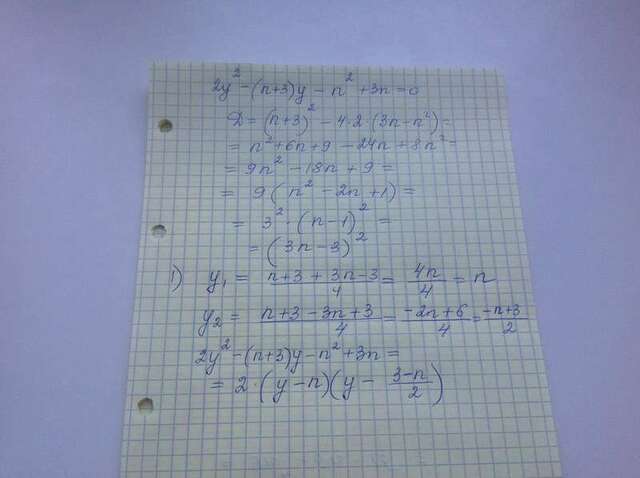 2y² - (n+3)y - n² + 3n = 0
D = (n+3)² - 4·2·(3n-n²) =
= n² + 6n + 9 - 24n + 8n² =
= 9n² - 18n + 9 =
= 9(n² - 2n + 1) =
= 3²·(n-1)² =
= (3n-3)²
1) y₁ = (n+3+3n-3)/4 = 4n/4 = n
y₂ = (n+3-3n+3)/4 = (-2n+6)/4 = (-n+3)/2
2y² - (n+3)y - n² + 3n =
= 2·(y-n)(y - (3-n)/2)